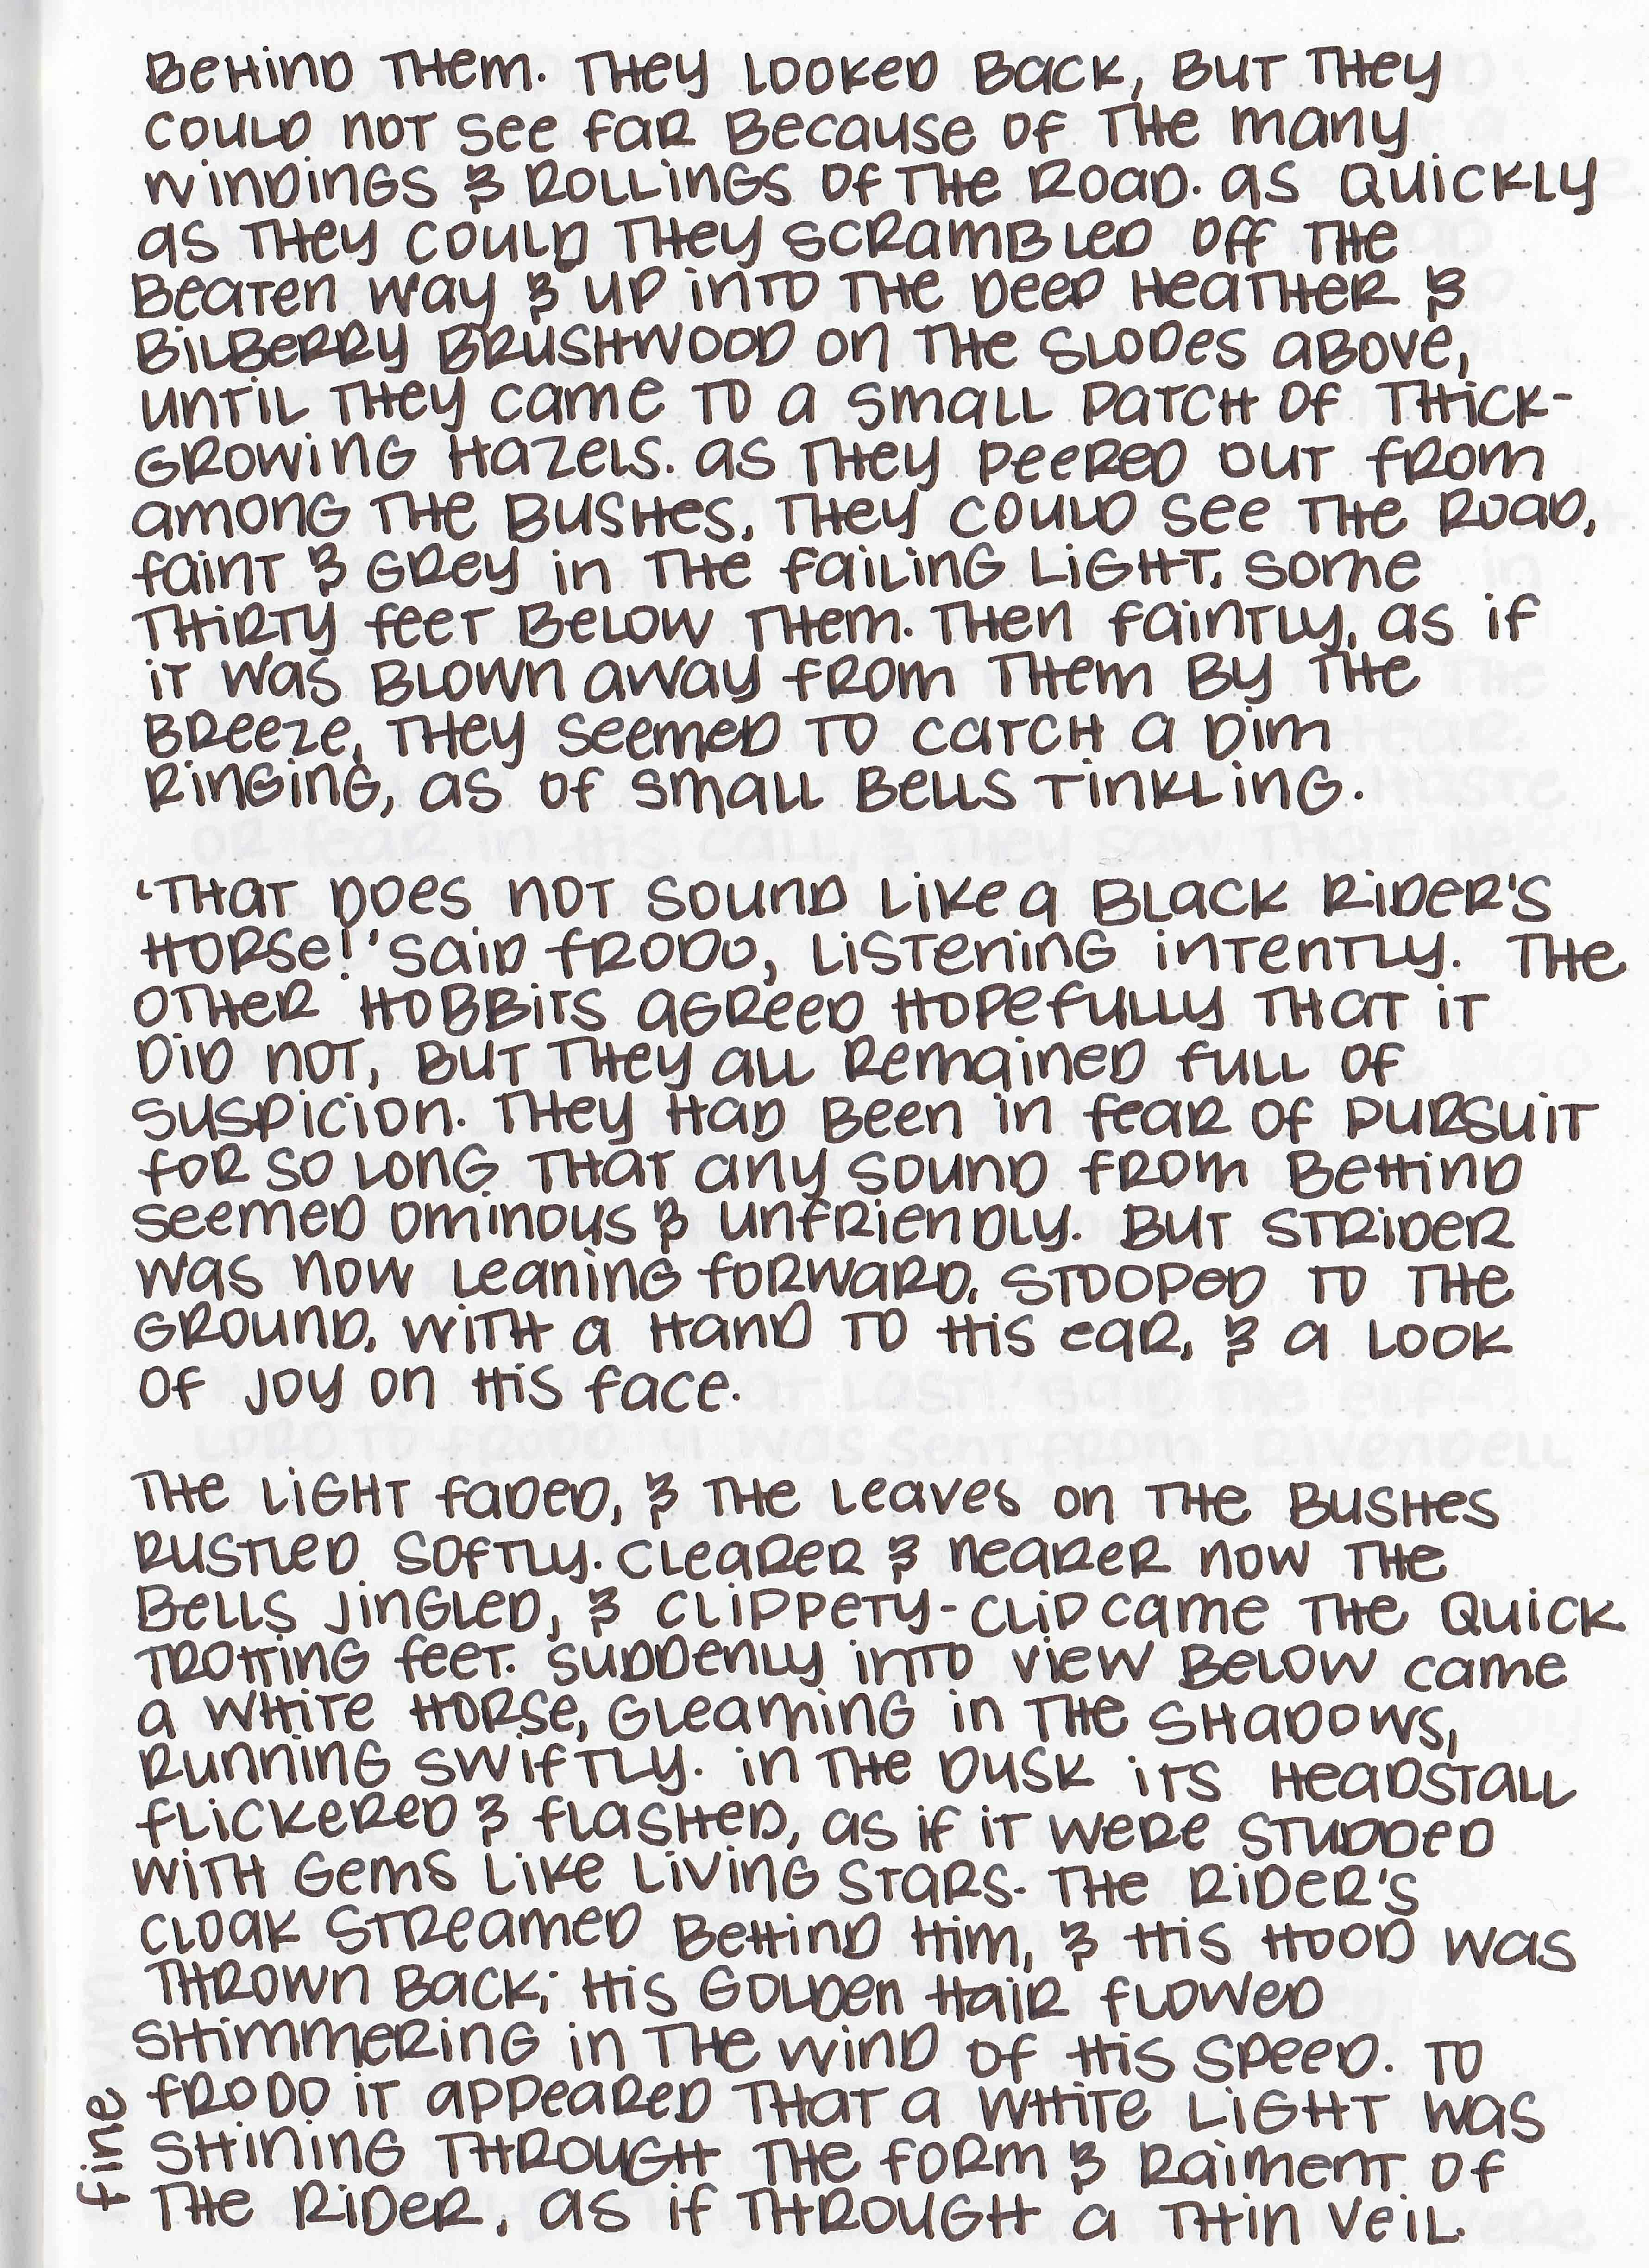 Behind them. They looked back, but they
could not see far because of the many
windings & rollings of the Road. As quickly
as they could they scrambled off the
beaten way & up into the deep heather &
bilberry brushwood on the slopes above,
until they came to a small patch of thick-
growing hazels. As they peered out from
among the bushes, they could see the Road,
faint & grey in the failing light, some
thirty feet below them. Then faintly, as if
it was blown away from them by the
breeze, they seemed to catch a dim
ringing, as of small bells tinkling.

'That does not sound like a Black Rider's
horse!' said Frodo, listening intently. The
other hobbits agreed hopefully that it
did not, but they all remained full of
suspicion. They had been in fear of pursuit
for so long that any sound from behind
seemed ominous & unfriendly. But Strider
was now leaning forward, stooped to the
ground, with a hand to his ear, & a look
of joy on his face.

The light faded, & the leaves on the bushes
rustled softly. Clearer & nearer now the
bells jingled, & clippety-clip came the quick
trotting feet. Suddenly into view below came
a white horse, gleaming in the shadows,
running swiftly. In the dusk its headstall
flickered & flashed, as if it were studded
with gems like living stars. The rider's
cloak streamed behind him, & his hood was
thrown back; his golden hair flowed
shimmering in the wind of his speed. To
Frodo it appeared that a white light was
shining through the form & raiment of
the rider, as if through a thin veil.
fine